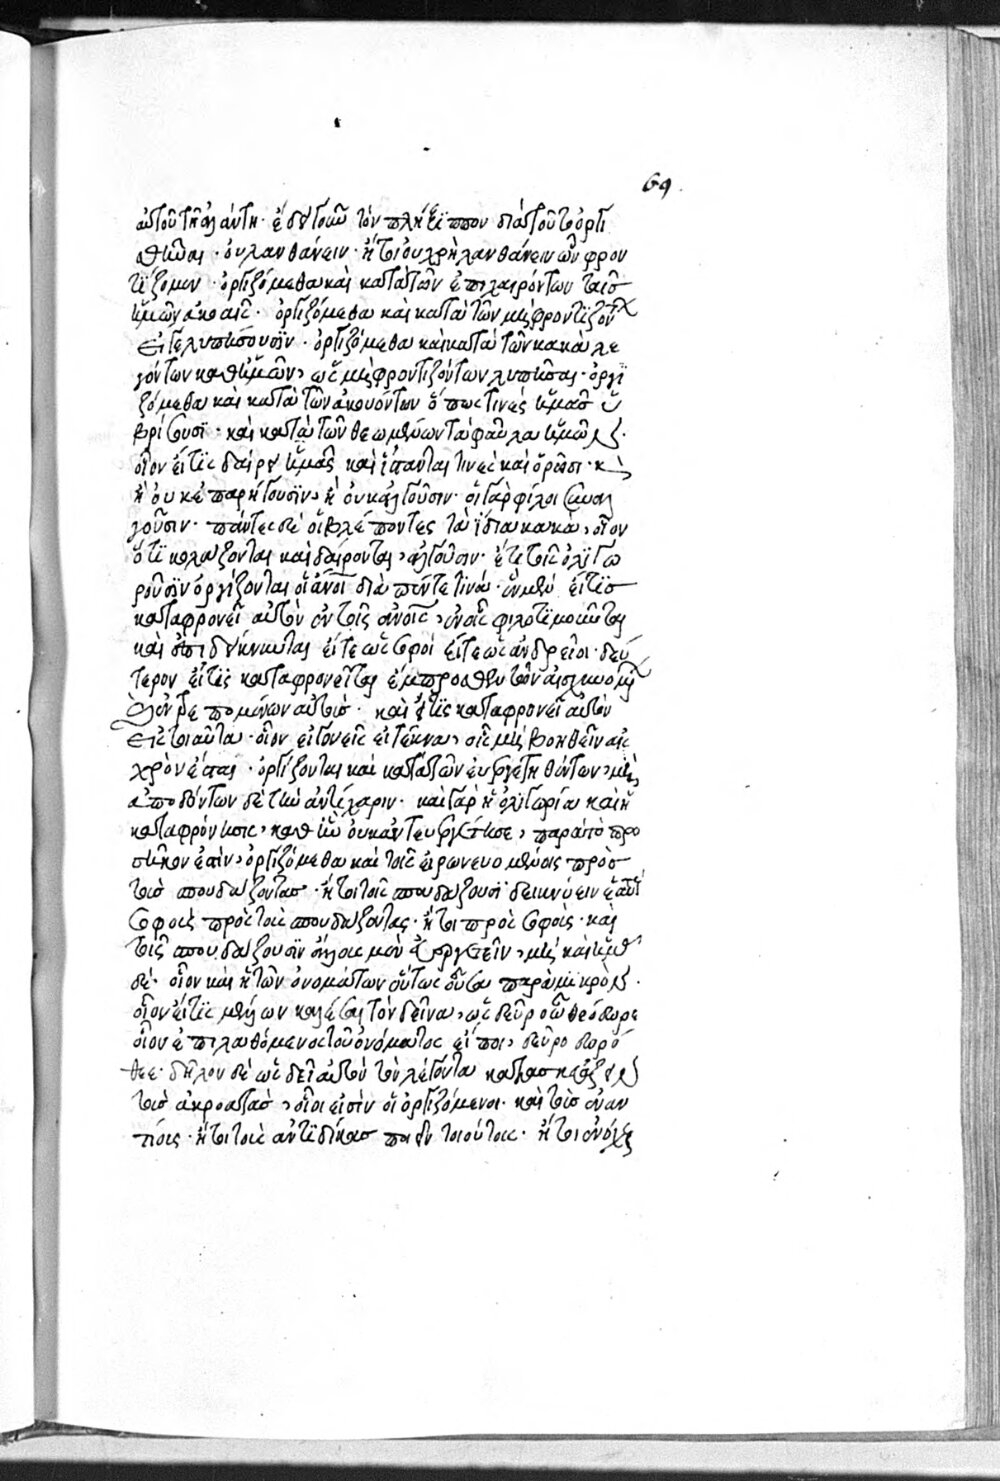 69
αὐτοῦ τῇ ἀταλάντῃ. ἔδει γοῦν τὸν πλήξιππον διὰ τοῦτο ὀργι
σθῆναι. οὐ λανθάνειν. ἤτοι οὐ χρὴ λανθάνειν ὧν φρον
τίζομεν. ὀργιζόμεθα καὶ κατὰ τῶν ἐπιχαιρόντων ταῖς
ἡμῶν ἀκοαῖς. ὀργιζόμεθα καὶ κατὰ τῶν μὴ φροντιζόντων
εἴτε λυπήσουσιν. ὀργιζόμεθα καὶ κατὰ τῶν κακὰ λε
γόντων καθ' ἡμῶν, ὡς μὴ φροντιζόντων λυπῆσαι. ὀργι
ζόμεθα καὶ κατὰ τῶν ἀκουόντων ὅπως τινὲς ἡμᾶς ὑ
βρίζουσι. καὶ κατὰ τῶν θεωμένων τὰ φαῦλα ἡμῶν.
οἷον εἴ τις δαίρει ἡμᾶς καὶ ἵστανταί τινες καὶ ὁρῶσι. καὶ
ἢ οὐκ ἐπαρήγουσιν, ἢ οὐκ ἀλγοῦσιν. οἱ γὰρ φίλοι συναλ
γοῦσιν. πάντες δὲ οἱ βλέποντες τὰ ἴδια κακὰ, οἷον
ὅτι κολάζονται καὶ δαίρονται, ἀλγοῦσιν. ἔτι τοῖς ὀλιγω
ροῦσιν ὀργίζονται οἱ ἄνοι διὰ πέντε τινά. ἓν μὲν εἴ τις
καταφρονεῖ αὐτὸν ἐν τοῖς ἀνοις, ἐν οἷς φιλοτιμοῦνται
καὶ ἐπιδείκνυνται εἴτε ὡς σοφοί εἴτε ὡς ἀνδρεῖοι. δεύ
τερον εἴ τις καταφρονεῖται ἔμπροσθεν τῶν αἰσχυνομένων
ἢ ἐντρεπομένων αὐτούς. καὶ εἴ τις καταφρονεῖ αὐτὸν
εἰς τοιαῦτα. οἷον εἰ γονεῖς εἰ τέκνα, οἷς μὴ βοηθεῖν αἰς
χρὸν ἐστι. ὀργίζονται καὶ κατὰ τῶν εὐεργετηθέντων, μὴ
ἀποδόντων δὲ τὴν ἀντίχαριν. καὶ γὰρ ἡ ὀλιγωρία καὶ ἡ
καταφρόνησις, καθ' ἣν οὐκ ἀντευεργέτησε, παρὰ τὸ προ
σῆκον ἐστὶν, ὀργιζόμεθα καὶ τοῖς εἰρωνευομένοις πρὸς
τοὺς σπουδάζοντας. ἤτοι τοῖς σπουδάζουσι δεικνύειν ἑαυτοὺς
σοφοὺς πρὸς τοὺς σπουδάζοντας. ἤτοι πρὸς σοφοὺς. καὶ
τοῖς σπουδάζουσιν ἄλλους μὲν εὐεργετεῖν, μὴ καὶ ἡμᾶς
δέ. οἷον καὶ ἡ τῶν ὀνομάτων οὕτως οὖσα παρὰ μικρὸν.
οἷον εἴ τις μέλλων καλέσαι τὸν δεῖνα, ὡς δεῦρο ὦ θεόδωρε
οἷον ἐπιλαθόμενος τοῦ ὀνόματος εἴποι, δεῦρο δωρό
θεε. δῆλον δὲ ὡς δεῖ αὐτὸν τὸν λέγοντα κατασκευάζειν
τοὺς ἀκροατὰς, οἷοι εἰσὶν οἱ ὀργιζόμενοι. καὶ τοὺς ἐναν
τίους. ἤτοι τοὺς ἀντιδίκους ποιεῖν τοιούτους. ἤτοι ἐνόχους